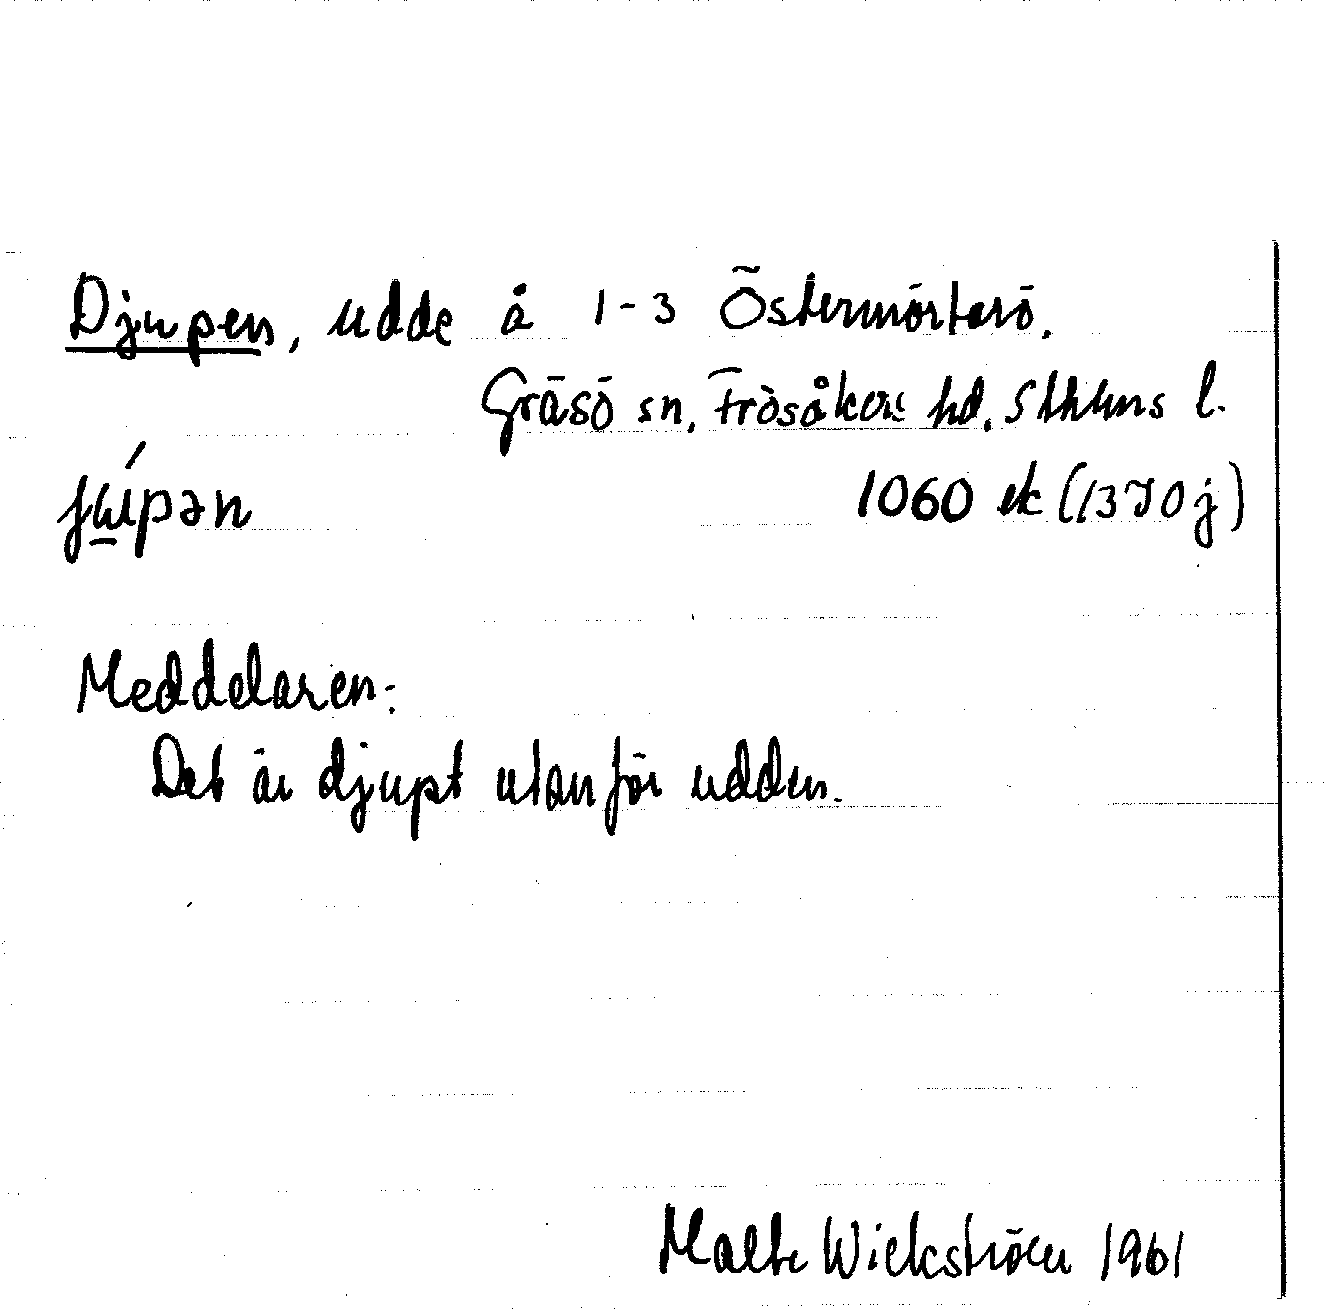 Djupen, udde å 1-3 Östermörterö.
Gräsö sn, Frösåkers hd, Sthlms l.
1060 ek (1370 j)
Meddelaren:
Det är djupt utanför udden.
Malte Wickström 1961